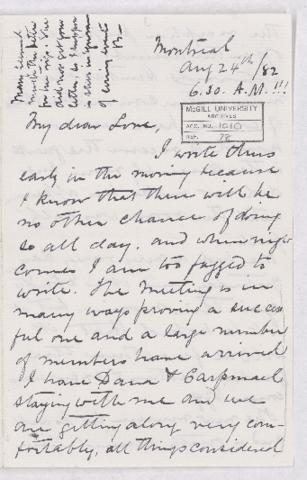 Mama seemed
much the better
for the trip. She
did not get your
letter, so I suppose
it
of
B—
Montreal
Aug 24th/82
6.30. A.M.!!!
McGILL UNIVERSITY
ARCHIVES
ACC. NO. 1010
REF. 78
My dear Love,
I write thus
early in the morning because
I know that there will be
no other chance of doing
so all day. and when night
comes I am too fagged to
write. The meeting is in
many ways proving a success
ful one and a large number
of members have arrived
I have Dana & Carpmael
staying with me and we
are getting along very com-
fortably, all things considered